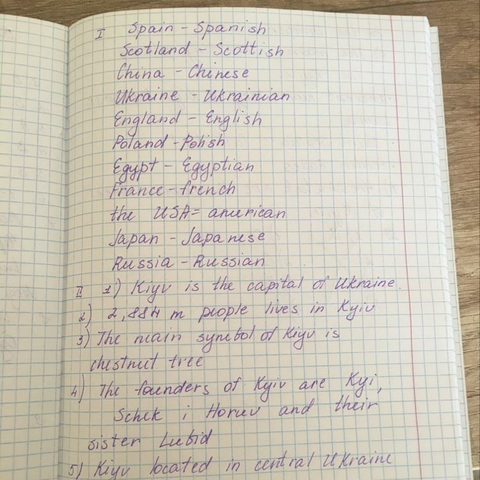 I Spain - Spanish
Scotland - Scottish
China - Chinese
Ukraine - Ukrainian
England - English
Poland - Polish
Egypt - Egyptian
France - french
the USA = american
Japan - Japanese
Russia - Russian
II 1) Kiyv is the capital of Ukraine
2) 2,884 m people lives in Kyiv
3) The main symbol of Kiyv is
chestnut tree
4) The founders of Kyiv are Kyi,
Schek i Horuv and their
sister Lubid
5) Kiyv located in central Ukraine